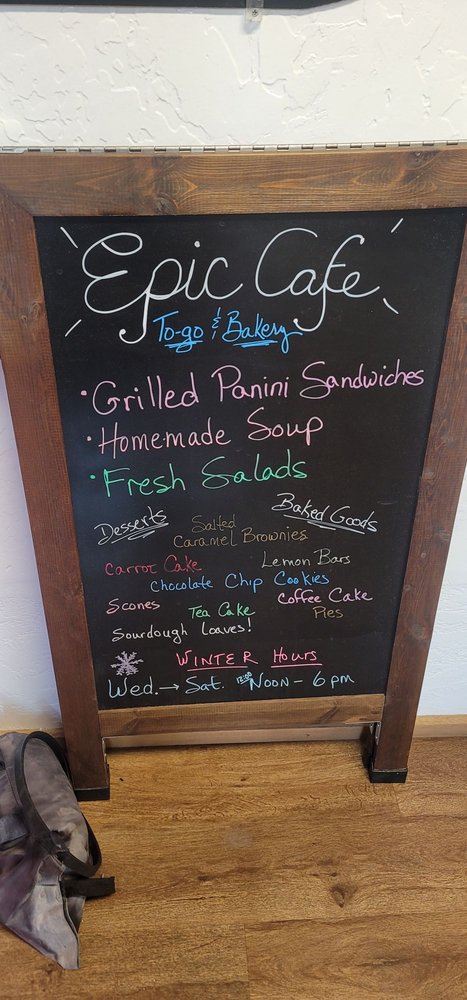 Epic Cafe
To-go & Bakery
• Grilled Panini Sandwiches
• Homemade Soup
• Fresh Salads
Desserts
Baked Goods
Salted
Caramel Brownies
Carrot Cake
Lemon Bars
Chocolate Chip Cookies
Scones
Tea Cake
Coffee Cake
Pies
Sourdough Loaves!
Winter Hours
Wed. → Sat. 12:00 Noon - 6 pm